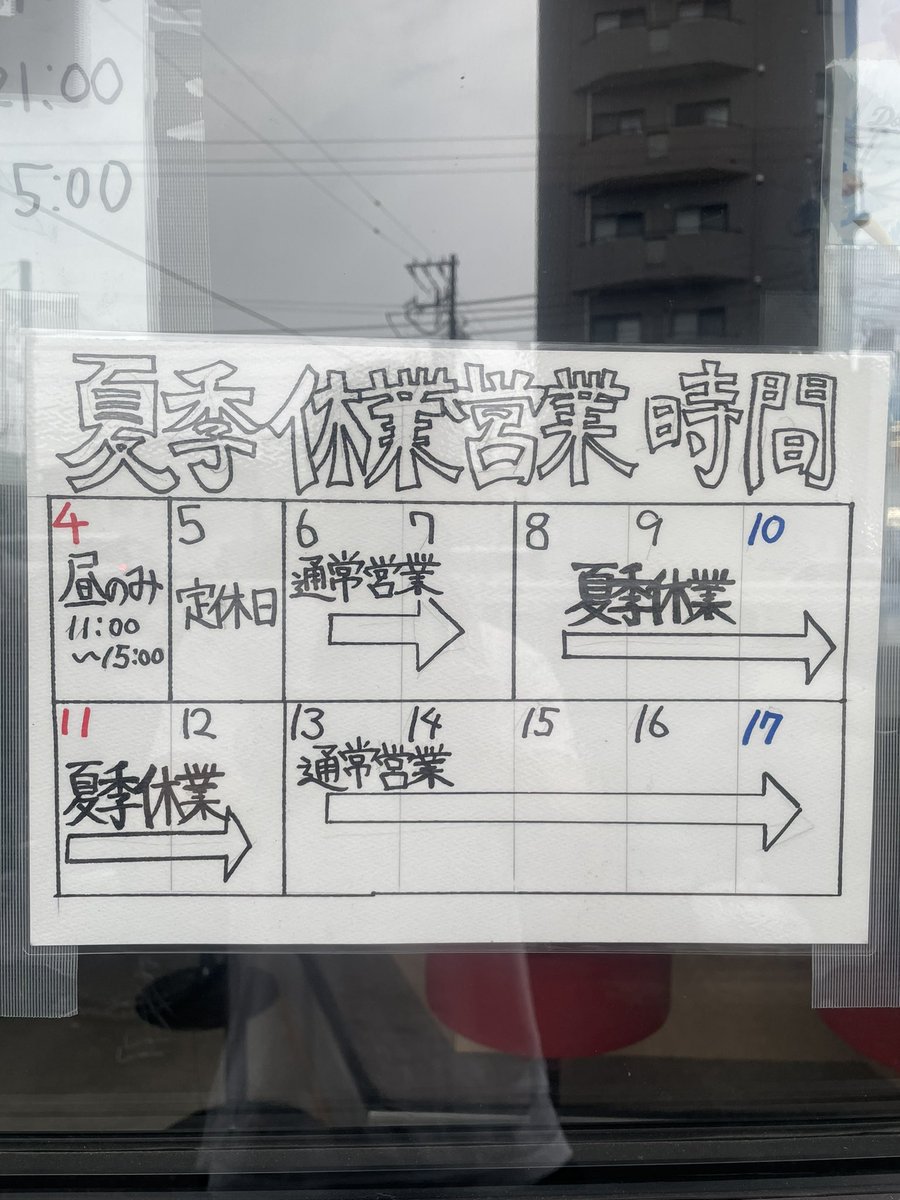 21:00
5:00
夏季休業営業時間
4 5 6 7 8 9 10
昼のみ
11:00
～15:00
定休日
通常営業
夏季休業
11 12 13 14 15 16 17
夏季休業
通常営業